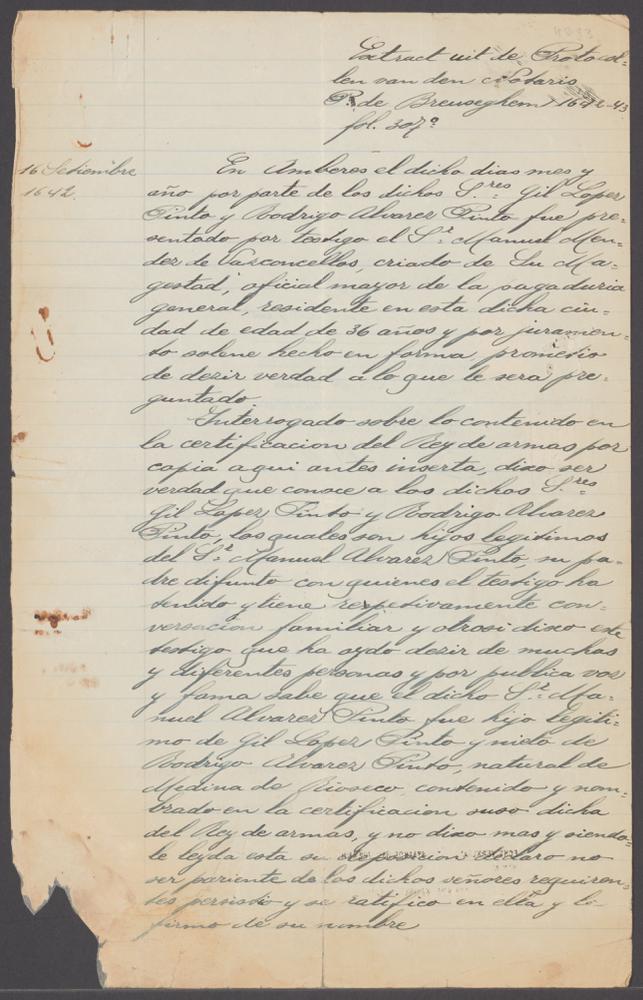 Extract uit de Protocol-
len van den Notaris
P. de Breuseghem 1642-43
fol. 307º
16 Setiembre
1642.
En Amberes el dicho dias mes y
año por parte de los dichos S.res Gil Lopez
Pinto y Rodrigo Alvarez Pinto fue pre-
sentado por testigo el S.r Manuel Men-
dez de Vasconcellos, criado de Su Ma-
gestad, oficial mayor de la pagaduria
general, residente en esta dicha ciu-
dad de edad de 36 años y por juramen-
to solene hecho en forma, prometio
de dezir verdad a lo que le sera pre-
guntado.
Interrogado sobre lo contenido en
la certificacion del Rey de armas por
copia aqui antes inserta, dixo ser
verdad que conoce a los dichos S.res
Gil Lopez Pinto y Rodrigo Alvarez
Pinto, los quales son hijos legitimos
del S.r Manuel Alvarez Pinto, su pa-
dre difunto con quienes el testigo ha
tenido y tiene respetivamente con-
versacion familiar y otrosi dixo este
testigo que ha oydo dezir de muchas
y diferentes personas y por publica voz
y fama sabe que el dicho S.r Ma-
nuel Alvarez Pinto fue hijo legiti-
mo de Gil Lopez Pinto y nieto de
Rodrigo Alvarez Pinto, natural de
Medina de Rioseco, contenido y nom-
brado en la certificacion suso dicha
del Rey de armas, y no dixo mas y siendo-
le leyda esta su deposicion declaro no
ser pariente de los dichos señores requiren-
tes persistio y se ratifico en ella y lo
firmo de su nombre